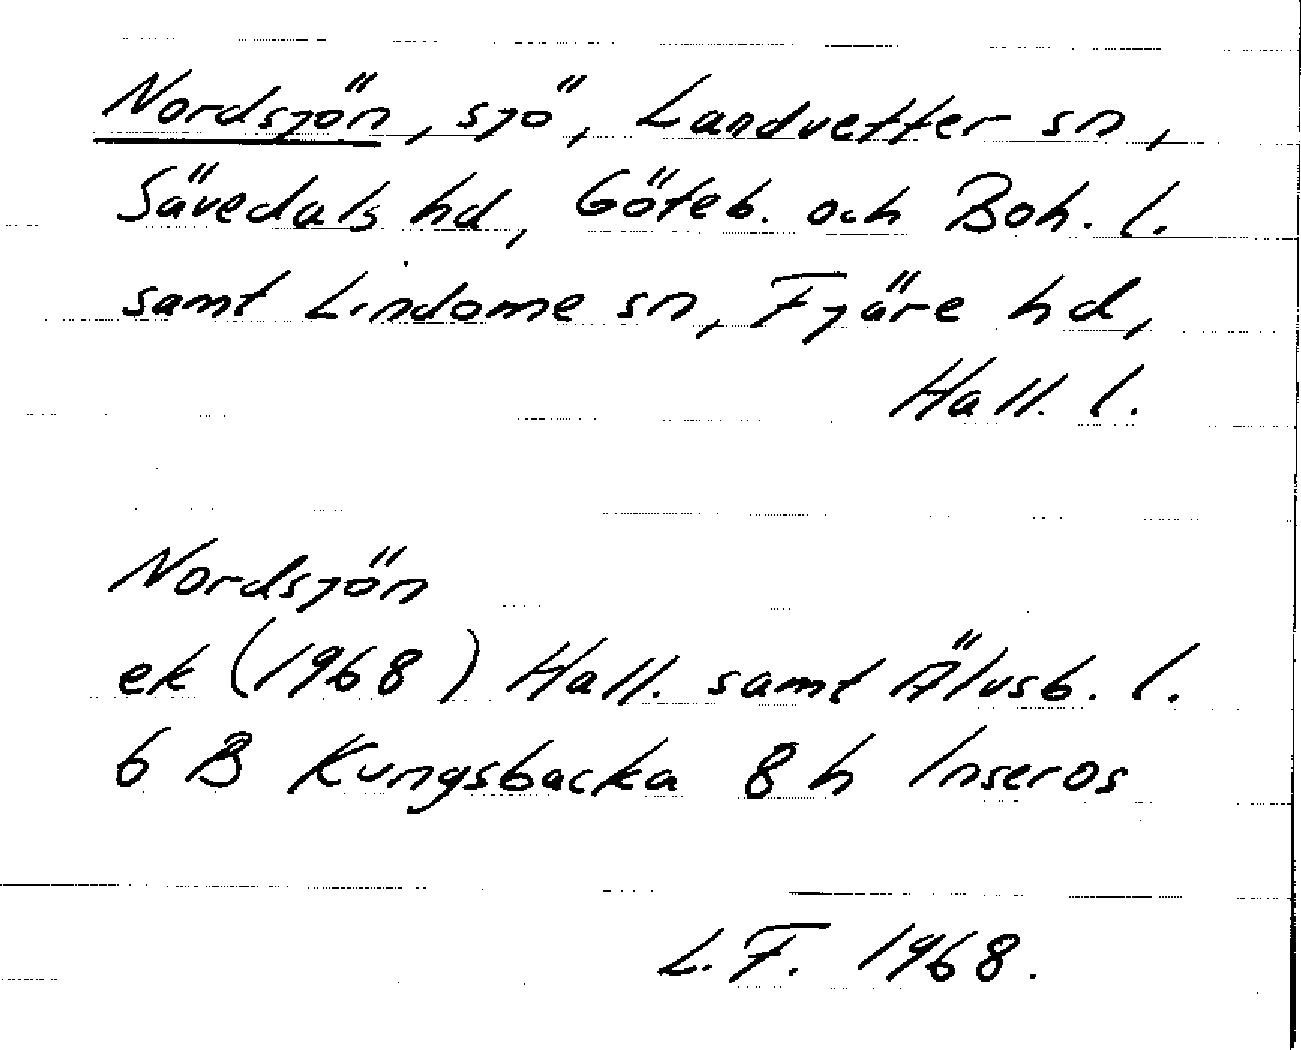 Nordsjön, sjö, Landvetter sn,
Sävedals hd, Göteb. och Boh. l.
samt Lindome sn, Fjäre hd,
Hall. l.
Nordsjön
ek (1968) Hall. samt Älvsb. l.
6 B Kungsbacka 8 h Inseros
L. F. 1968.